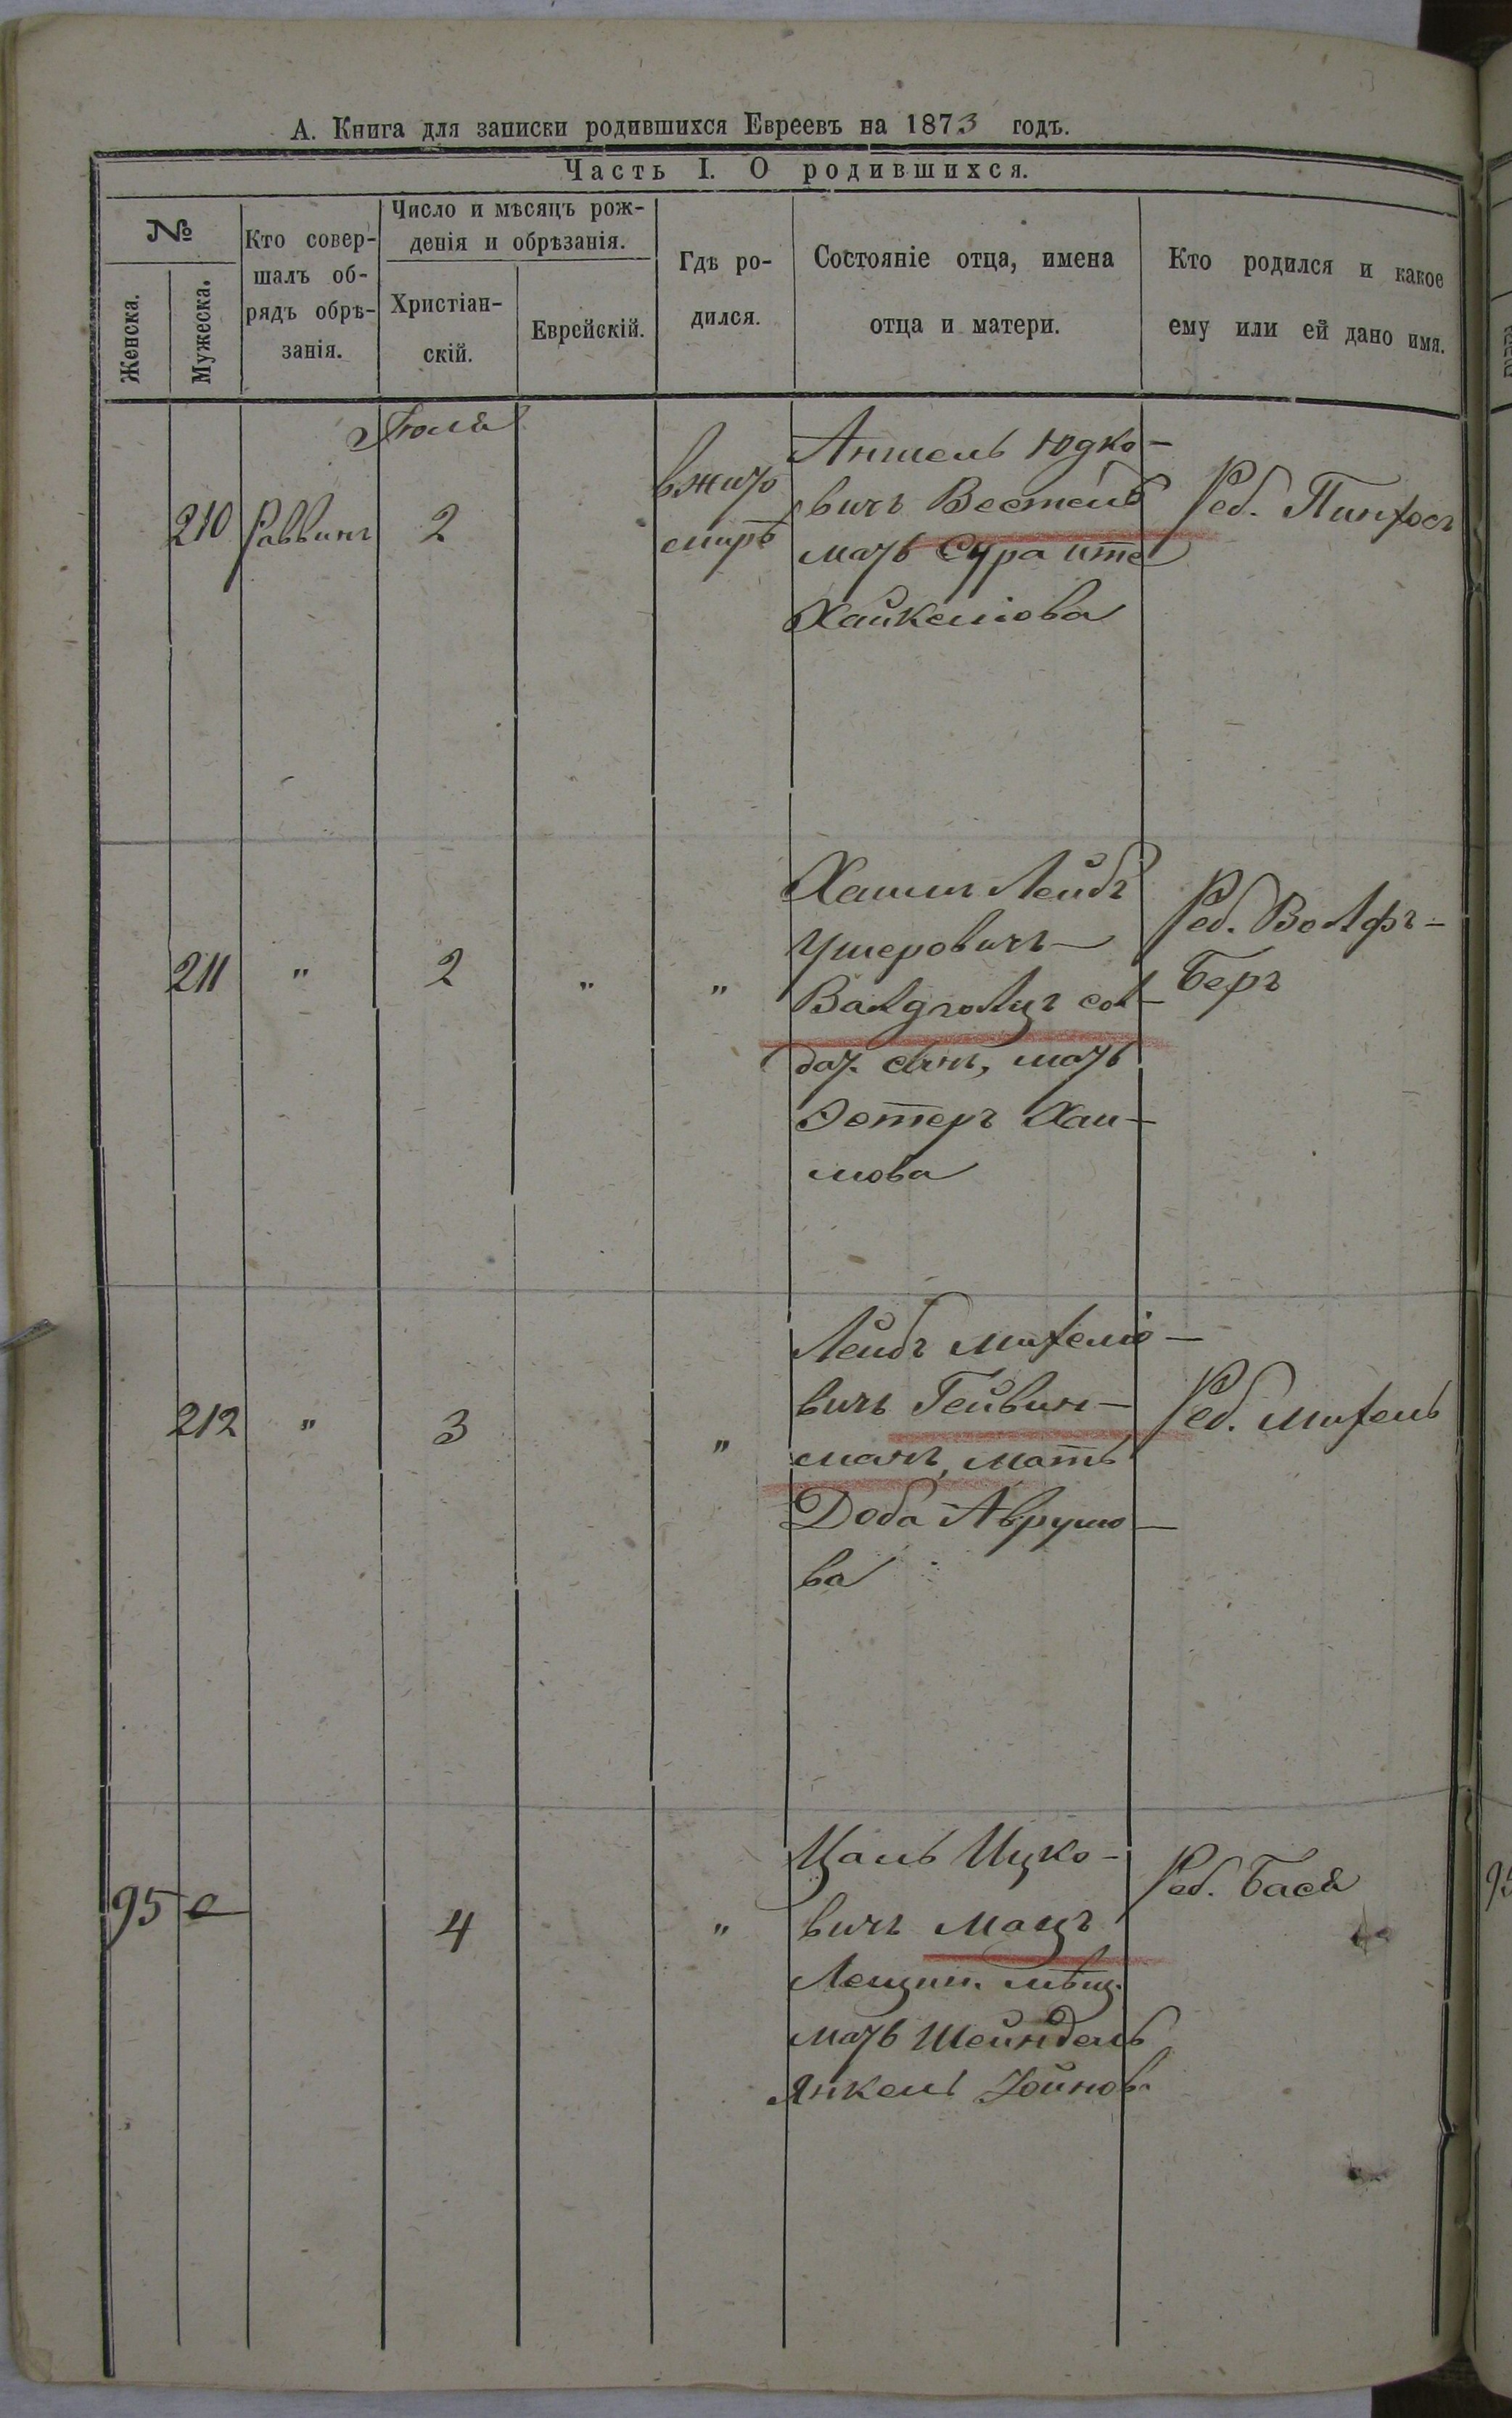 А. Книга для записки родившихся Евреевъ на 1873 годъ.
Часть I. О родившихся.
№
Женска.
Мужеска.
Кто совер-
шалъ об-
рядъ обрѣ-
занія.
Число и мѣсяцъ рож-
денія и обрѣзанія.
Христіан-
скій.
Еврейскій.
Гдѣ ро-
дился.
Состояніе отца, имена
отца и матери.
Кто родился и какое
ему или ей дано имя.
Іюля
210
Раввинъ
2
вжито
мирѣ
Аншель Юдко-
вичъ
мать Сура
Хайкелiова
Реб. Пинхосъ
211
"
2
"
"
Хаимъ Лейбъ
Ушеровичъ
сол-
дат. сынъ, мать
Эстеръ Хаи-
мова
Реб. Волфъ-
Беръ
212
"
3
"
Лейбъ Михелiо-
вичъ Гейвин-
манъ, мать
Доба Аврумо-
ва
Реб. Михель
95
4
"
Цаль Ицко-
вичъ Мацъ
мѣщ.
мать Шейндель
Янкель
Реб. Бася